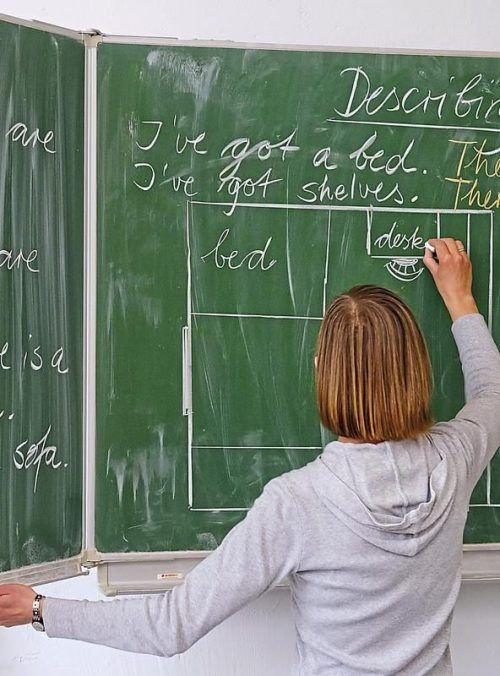 are
are
is a
..
sofa.
Describi
I've got a bed. The
I've got shelves. Ther
bed
desk